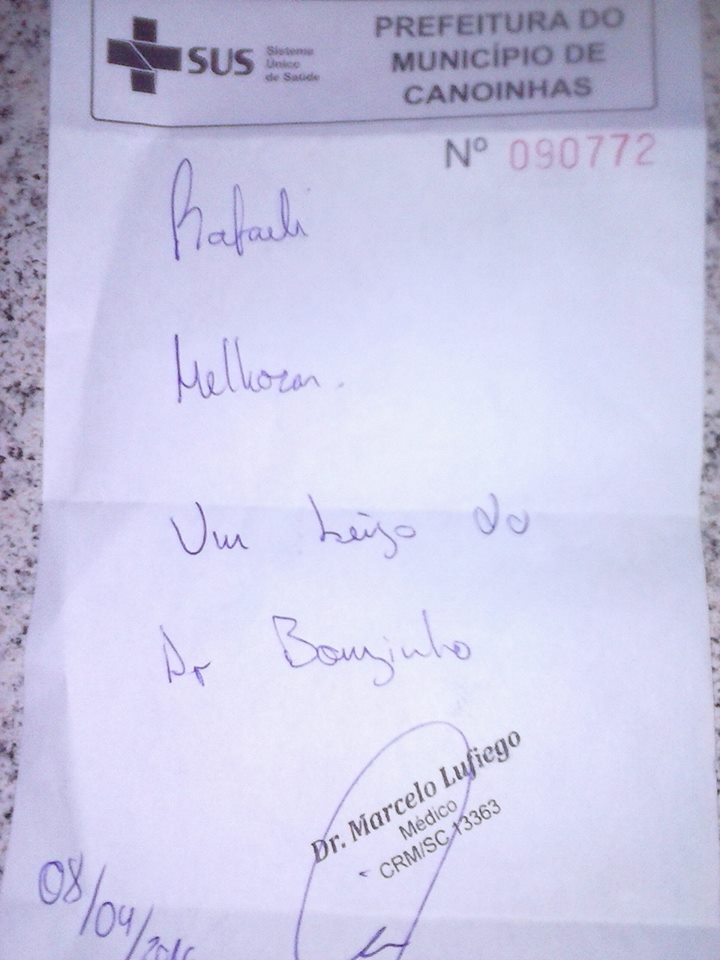 SUS
Sistema
Único
de Saúde
PREFEITURA DO
MUNICÍPIO DE
CANOINHAS
Nº 090772
Rafaeli
Melhoras.
Um beijo do
Dr Bonzinho
Dr. Marcelo Lufiego
Médico
CRM/SC 13363
08/04/